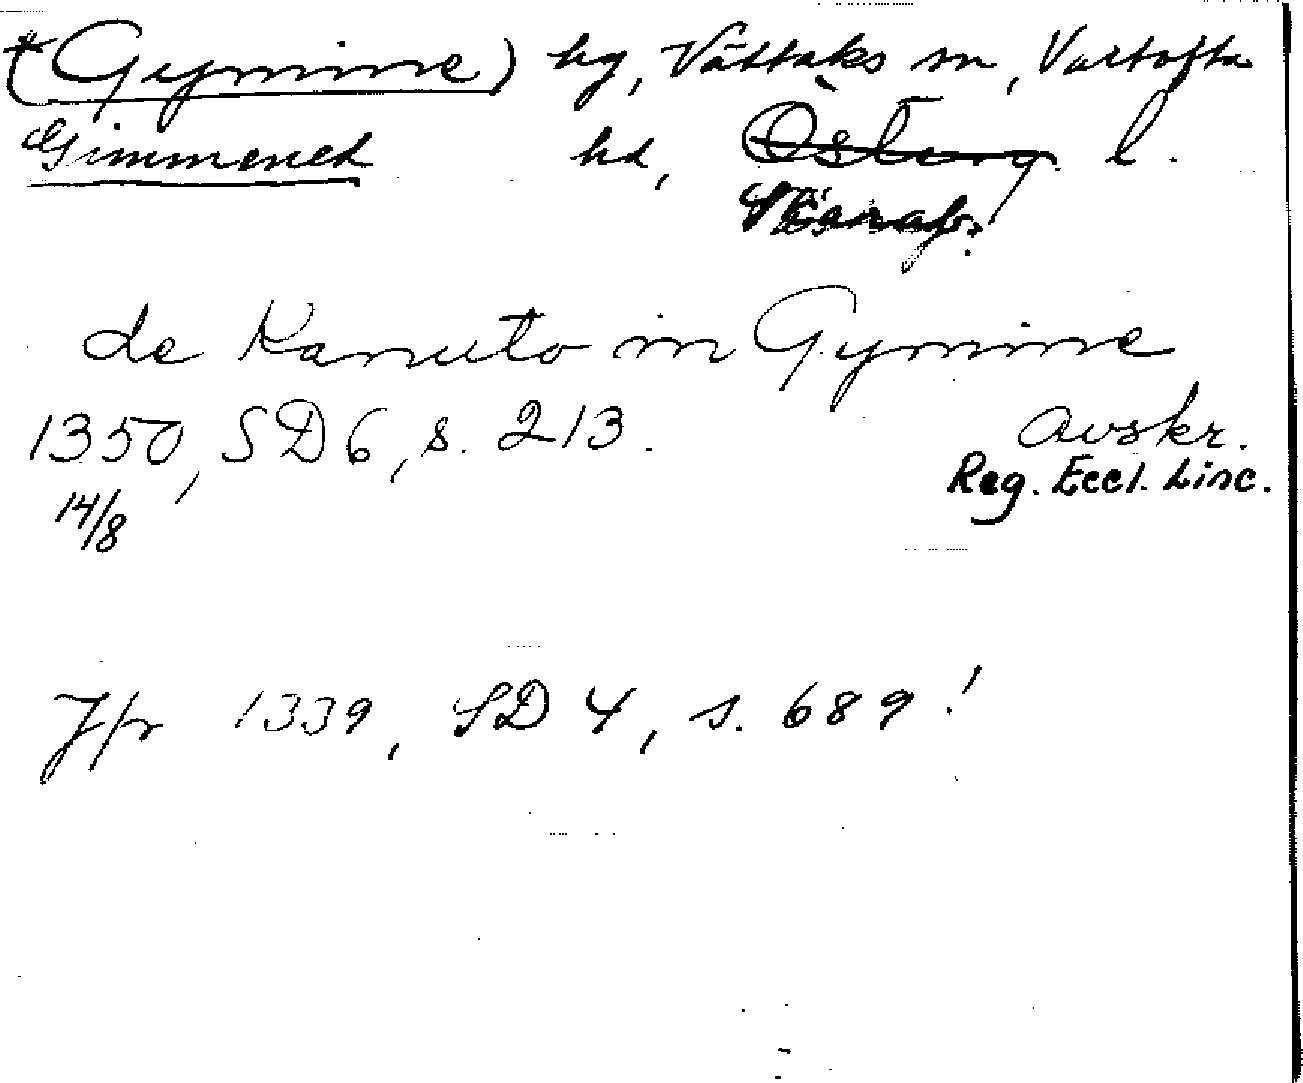 *(Gymine) hg, Vättaks sn, Vartofta
Gimmened hd, Östung l.
Skarab.
de Kanuto in Gymine
1350, SD 6, s. 213. avskr.
14/8 Reg. Eccl. Linc.
Jfr 1339, SD 4, s. 689!